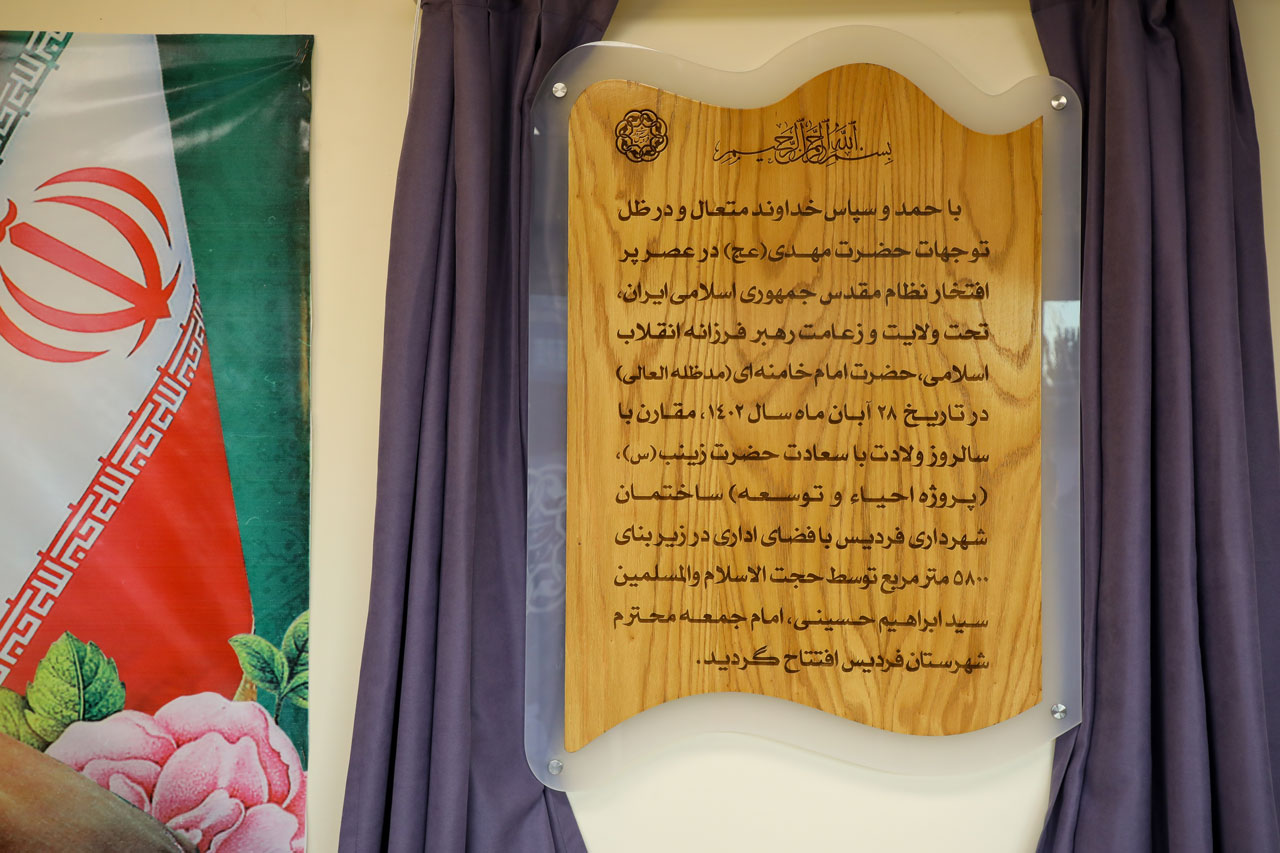 بسم الله الرحمن الرحیم
با حمد و سپاس خداوند متعال و در ظل
توجهات حضرت مهدی(عج) در عصر پر
افتخار نظام مقدس جمهوری اسلامی ایران،
تحت ولایت و زعامت رهبر فرزانه انقلاب
اسلامی، حضرت امام خامنه‌ای (مدظله العالی)
در تاریخ ۲۸ آبان ماه سال ۱۴۰۲، مقارن با
سالروز ولادت با سعادت حضرت زینب(س)،
(پروژه احیاء و توسعه) ساختمان
شهرداری فردیس با فضای اداری در زیر بنای
۵۸۰۰ متر مربع توسط حجت الاسلام والمسلمین
سید ابراهیم حسینی، امام جمعه محترم
شهرستان فردیس افتتاح گردید.